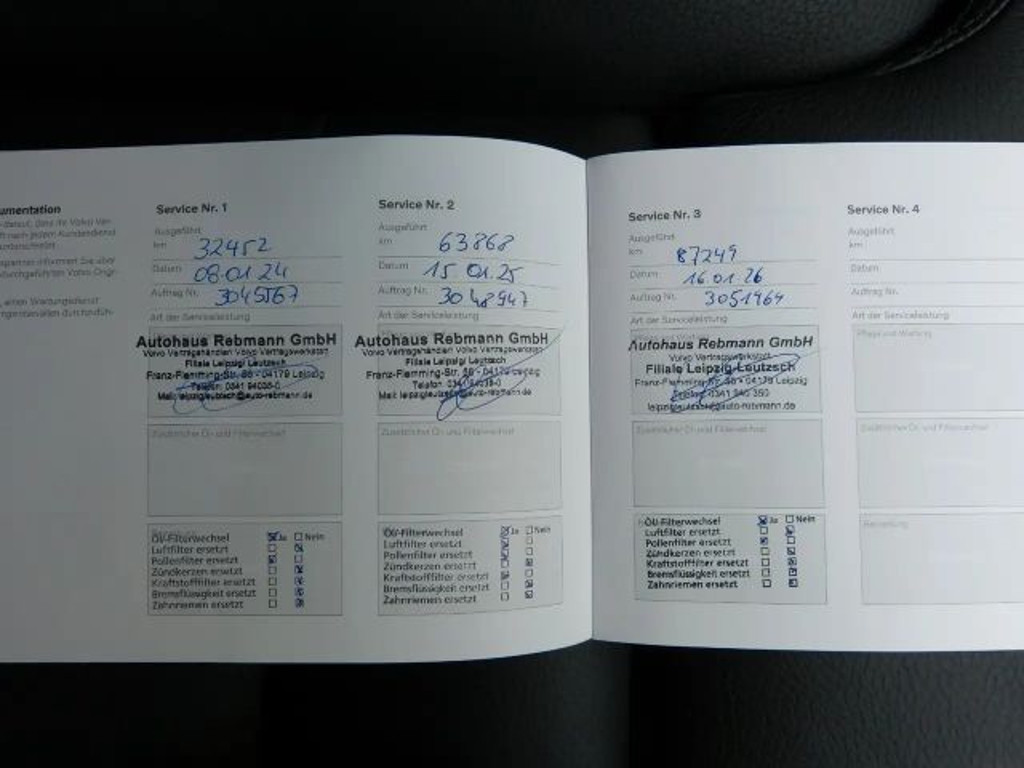 umentation
Service Nr. 1
Ausgeführt
km 32452
Datum 08.01.24
Auftrag Nr. 3045767
Art der Serviceleistung
Autohaus Rebmann GmbH
Volvo Vertragshändler Volvo Vertragswerkstatt
Filiale Leipzig/ Leutzsch
Franz-Flemming-Str. 56 • 04179 Leipzig
Telefon: 0341 94035-0
Zusätzlicher Öl- und Filterwechsel
Öl/-Filterwechsel Ja Nein
Luftfilter ersetzt
Pollenfilter ersetzt
Zündkerzen ersetzt
Kraftstofffilter ersetzt
Bremsflüssigkeit ersetzt
Zahnriemen ersetzt
Service Nr. 2
Ausgeführt
km 63868
Datum 15.01.25
Auftrag Nr. 3048947
Art der Serviceleistung
Autohaus Rebmann GmbH
Volvo Vertragshändler Volvo Vertragswerkstatt
Filiale Leipzig/ Leutzsch
Franz-Flemming-Str. 56 • 04179 Leipzig
Telefon:
Zusätzlicher Öl- und Filterwechsel
Öl/-Filterwechsel Ja Nein
Luftfilter ersetzt
Pollenfilter ersetzt
Zündkerzen ersetzt
Kraftstofffilter ersetzt
Bremsflüssigkeit ersetzt
Zahnriemen ersetzt
Service Nr. 3
Ausgeführt
km 87249
Datum 16.01.26
Auftrag Nr. 3051964
Art der Serviceleistung
Autohaus Rebmann GmbH
Volvo Vertragswerkstatt
Filiale Leipzig-Leutzsch
Franz-Flemming-Str. 56 • 04179 Leipzig
Zusätzlicher Öl- und Filterwechsel
Öl/-Filterwechsel Ja Nein
Luftfilter ersetzt
Pollenfilter ersetzt
Zündkerzen ersetzt
Kraftstofffilter ersetzt
Bremsflüssigkeit ersetzt
Zahnriemen ersetzt
Service Nr. 4
Ausgeführt
km
Datum
Auftrag Nr.
Art der Serviceleistung
Pflege und Wartung
Zusätzlicher Öl- und Filterwechsel
Bemerkung